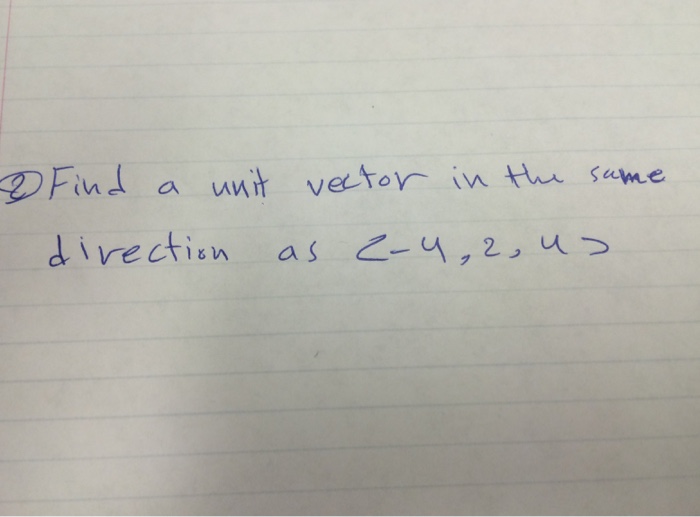 ② Find a unit vector in the same
direction as <-4, 2, 4>